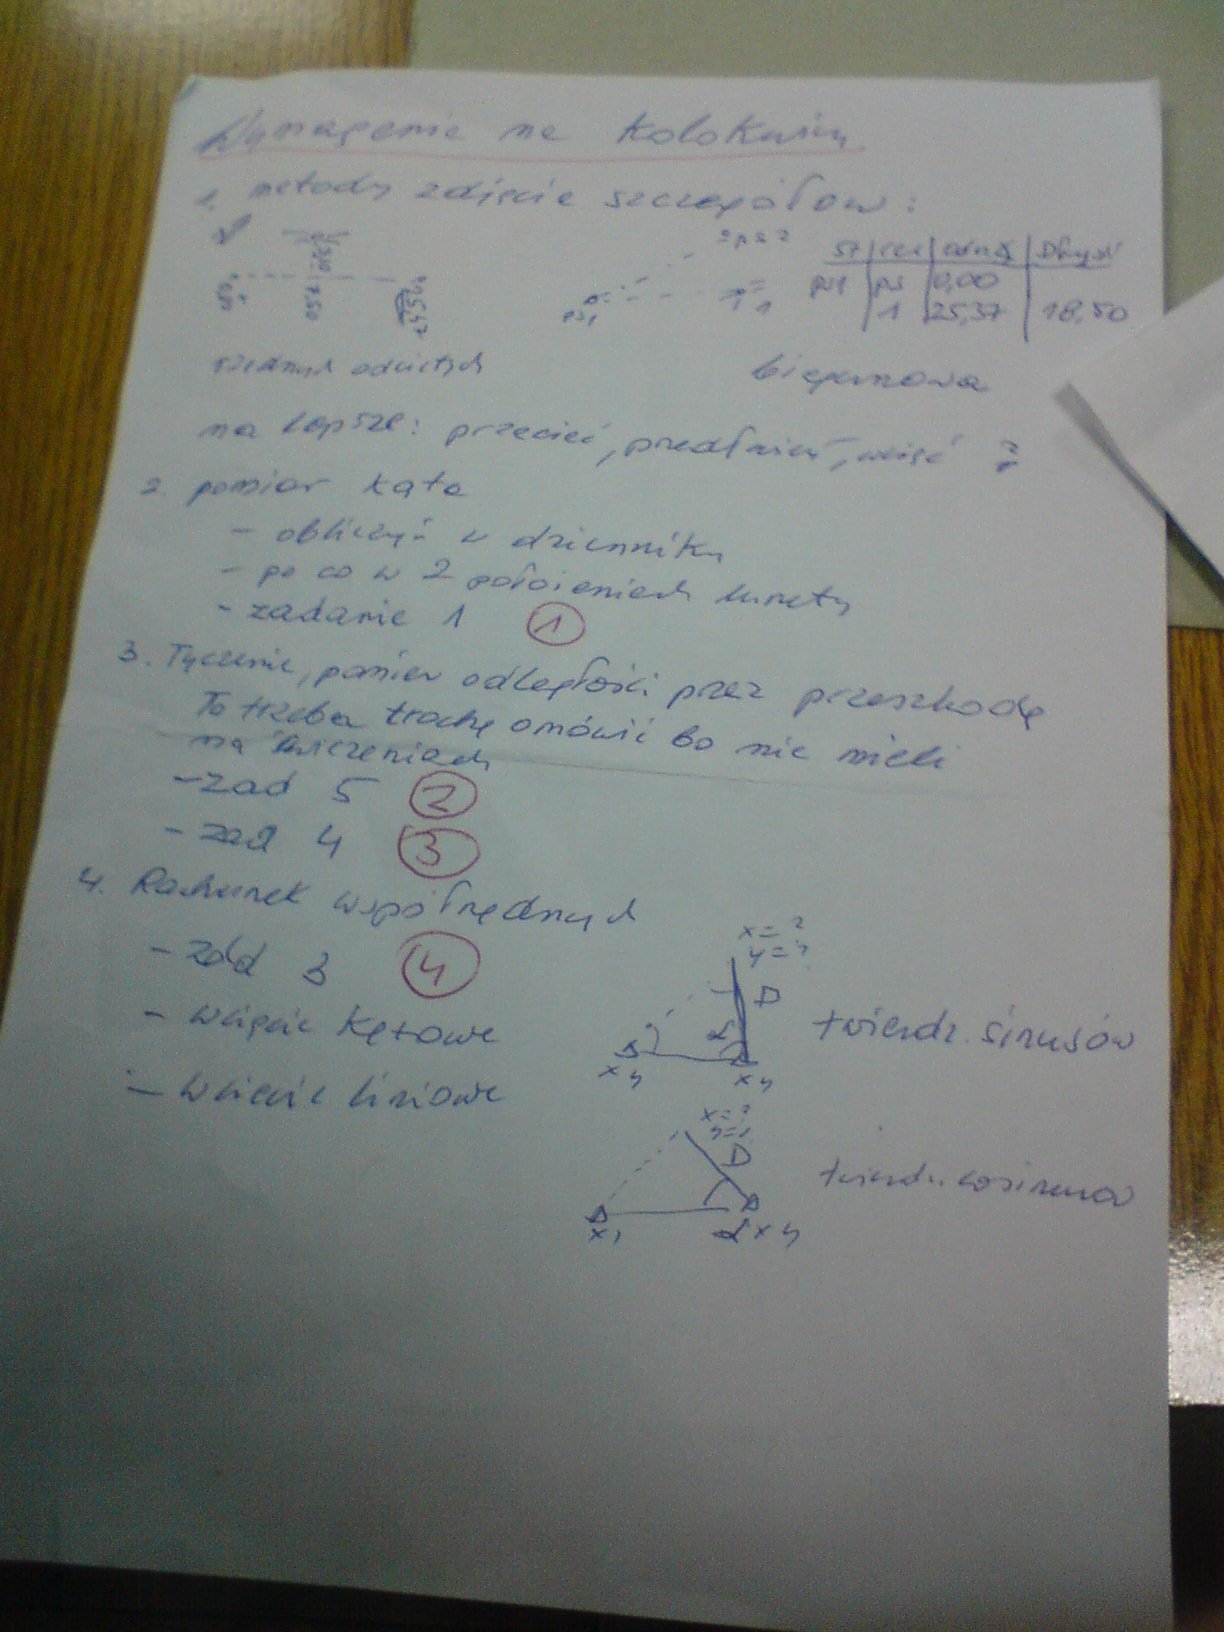 Wymagania na kolokwium
1. metody zdjęcia szczegółów:
St cel odczyt Długość
ps1 ps 0,00
1 25,37 18,50
ps1 1
rzędnych odciętych biegunowa
na lepsze: przecięć, przedłużeń, wcięć ?
2. pomiar kąta
- obliczyć w dzienniku
- po co w 2 położeniach lunety
- zadanie 1 1
3. Tyczenie, pomiar odległości przez przeszkodę
To trzeba trochę omówić bo nie mieli
na ćwiczeniach
- zad 5 2
- zad 4 3
4. Rachunek współrzędnych
- zad 3 4
x=?
y=?
D
α
x y x y
- wcięcie kątowe twierdz. sinusów
- wcięcie liniowe
x=?
y=?
D
α x y
twierdz. cosinusów